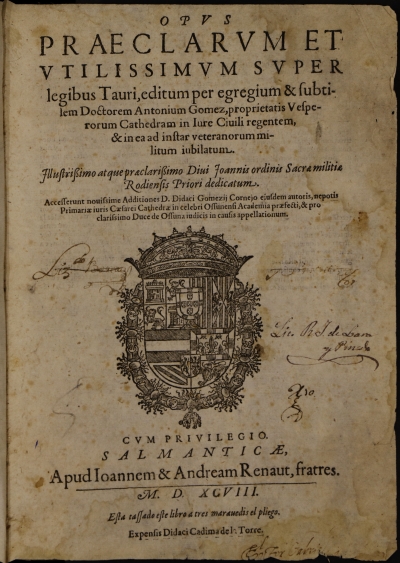 OPVS
PRAECLARVM ET
VTILISSIMVM SVPER
legibus Tauri, editum per egregium & subti-
lem Doctorem Antonium Gomez, proprietatis Vespe-
rorum Cathedram in Iure Ciuili regentem,
& in ea ad instar veteranorum mi-
litum iubilatum.
Illustrißimo atque præclarißimo Diui Joannis ordinis Sacræ militiæ
Rodiensis Priori dedicatum.
Accesserunt nouissime Additiones D. Didaci Gomezij Cornejo eiusdem autoris, nepotis
Primariæ iuris Cæsarei Cathedræ in celebri Ossunensi Academia præfecti, & pro
clarissimo Duce de Ossuna iudicis in causis appellationum.
CVM PRIVILEGIO.
SALMANTICÆ,
Apud Ioannem & Andream Renaut, fratres.
M. D. XCVIII.
Esta tassado este libro a tres marauedis el pliego.
Expensis Didaci Cadima de la Torre.